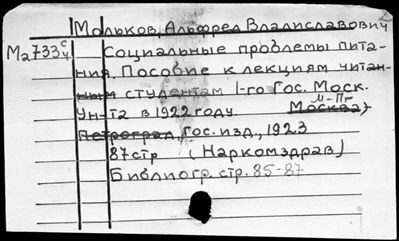 Мольков, Альфред Владиславович
Ма733 с/4 Социальные проблемы пита-
ния. Пособие к лекциям, читан-
ным студентам 1-го Гос. Моск.
Ун-та в 1922 году. Москва, М-Пг
Петроград, Гос. изд., 1923
87 стр (Наркомздрав)
Библиогр. стр. 85-87